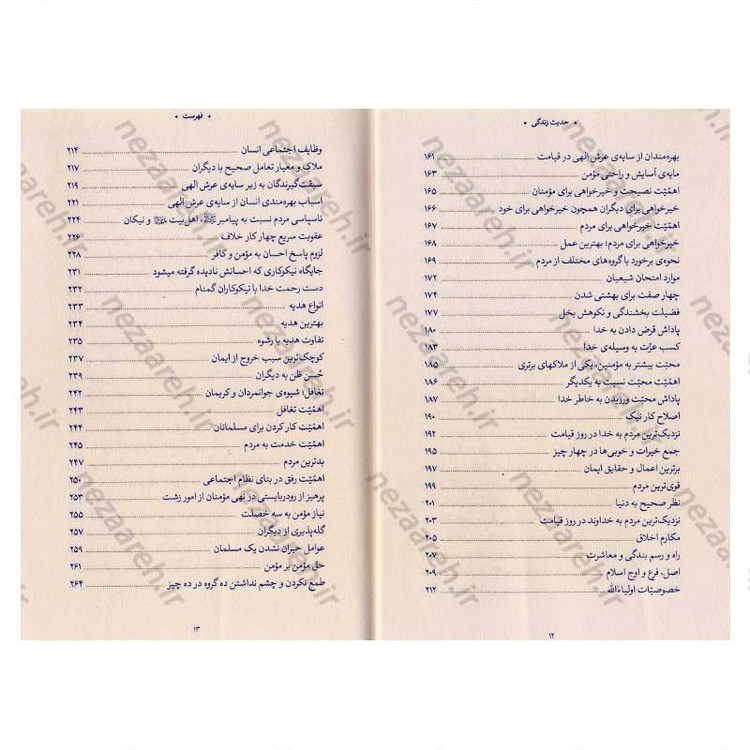 • حدیث زندگی •
بهره‌مندان از سایه‌ی عرش الهی در قیامت ۱۶۱
مایه‌ی آسایش و راحتی مؤمن ۱۶۳
اهمّیّت نصیحت و خیرخواهی برای مؤمنان ۱۶۵
خیرخواهی برای دیگران همچون خیرخواهی برای خود ۱۶۶
اهمّیّت خیرخواهی برای مردم ۱۶۷
خیرخواهی برای مردم؛ بهترین عمل ۱۶۸
نحوه‌ی برخورد با گروه‌های مختلف از مردم ۱۶۹
موارد امتحان شیعیان ۱۷۲
چهار صفت برای بهشتی شدن ۱۷۴
فضیلت بخشندگی و نکوهش بخل ۱۷۷
پاداش قرض دادن به خدا ۱۸۰
کسب عزّت به وسیله‌ی خدا ۱۸۳
محبّت بیشتر به مؤمنین، یکی از ملاکهای برتری ۱۸۵
اهمّیّت محبّت نسبت به یکدیگر ۱۸۶
پاداش محبّت ورزیدن به خاطر خدا ۱۸۷
اصلاح کار نیک ۱۹۰
نزدیک‌ترین مردم به خدا در روز قیامت ۱۹۲
جمع خیرات و خوبی‌ها در چهار چیز ۱۹۵
برترین اعمال و حقایق ایمان ۱۹۷
قوی‌ترین مردم ۱۹۹
نظر صحیح به دنیا ۲۰۱
نزدیک‌ترین مردم به خداوند در روز قیامت ۲۰۳
مکارم اخلاق ۲۰۵
راه و رسم بندگی و معاشرت ۲۰۷
اصل، فرع و اوج اسلام ۲۰۹
خصوصیّات اولیاءالله ۲۱۲
۱۲
• فهرست •
وظایف اجتماعی انسان ۲۱۴
ملاک و معیار تعامل صحیح با دیگران ۲۱۷
سبقت‌گیرندگان به زیر سایه‌ی عرش الهی ۲۱۹
اسباب بهره‌مندی انسان از سایه‌ی عرش الهی ۲۲۱
ناسپاسی مردم نسبت به پیامبر ﷺ، اهل‌بیت و نیکان ۲۲۴
عقوبت سریع چهار کار خلاف ۲۲۶
لزوم پاسخ احسان به مؤمن و کافر ۲۲۸
جایگاه نیکوکاری که احسانش نادیده گرفته میشود ۲۳۱
دست رحمت خدا با نیکوکاران گمنام ۲۳۲
انواع هدیه ۲۳۳
بهترین هدیه ۲۳۴
تفاوت هدیه با رشوه ۲۳۵
کوچک‌ترین سبب خروج از ایمان ۲۳۷
حُسن ظن به دیگران ۲۳۹
تغافل؛ شیوه‌ی جوانمردان و کریمان ۲۴۲
اهمّیّت تغافل ۲۴۳
اهمّیّت کار کردن برای مسلمانان ۲۴۴
اهمّیّت خدمت به مردم ۲۴۵
بدترین مردم ۲۴۷
اهمّیّت رفق در بنای نظام اجتماعی ۲۵۰
پرهیز از رودربایستی در نهی مؤمنان از امور زشت ۲۵۳
نیاز مؤمن به سه خصلت ۲۵۵
گله‌پذیری از دیگران ۲۵۷
عوامل حیران نشدن یک مسلمان ۲۵۹
حق مؤمن بر مؤمن ۲۶۱
طمع نکردن و چشم نداشتن ده گروه در ده چیز ۲۶۴
۱۳
nezaareh.ir